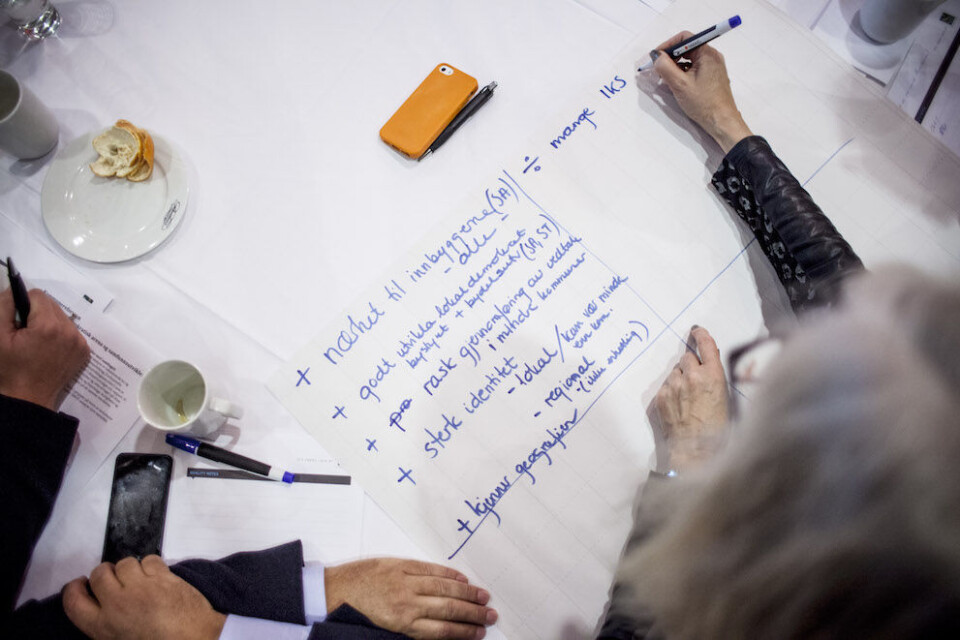 + nærhet til innbyggerne (SA)
- alle -
+ godt utvikla lokaldemokrati
bystyret + bydelsutv (SP, ST)
+ rask gjennomføring av vedtak
i mindre kommuner
+ sterk identitet
- lokal / kan vær mindre
- regional
+ kjenner geografien
÷ mange IKS